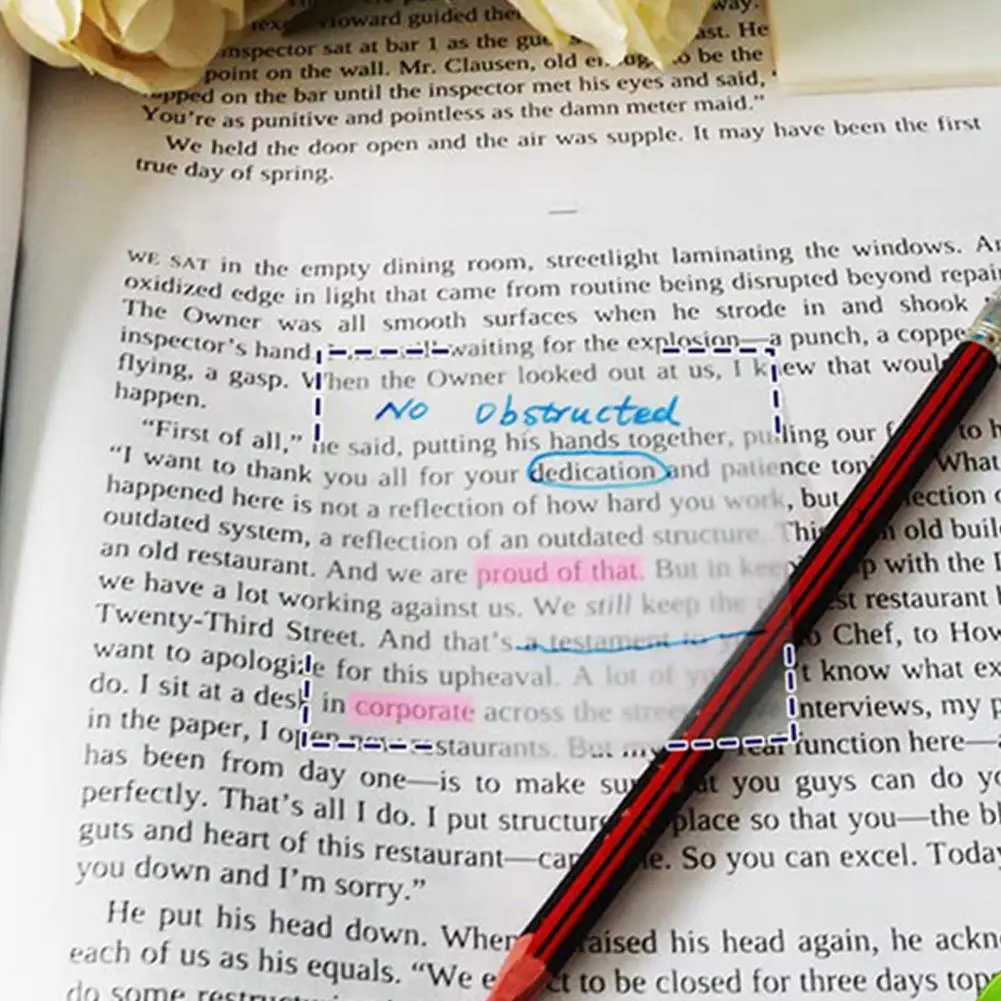 inspector sat at bar 1 as the ast. He
point on the wall. Mr. Clausen, old be the
on the bar until the inspector met his eyes and said,
You're as punitive and pointless as the damn meter maid."
We held the door open and the air was supple. It may have been the first
true day of spring.
—
WE SAT in the empty dining room, streetlight laminating the windows.
oxidized edge in light that came from routine being disrupted beyond repair
The Owner was all smooth surfaces when he strode in and shook
inspector's hand, waiting for the explosion—a punch, a
flying, a gasp. When the Owner looked out at us, I knew that
happen.
No obstructed
"First of all," he said, putting his hands together, pulling our to
"I want to thank you all for your dedication and patience What
happened here is not a reflection of how hard you work, but
outdated system, a reflection of an outdated structure. This old
an old restaurant. And we are proud of that. But in with the
we have a lot working against us. We still keep the restaurant
Twenty-Third Street. And that's a testament to Chef, to
want to apologize for this upheaval. A lot of know what
do. I sit at a desk in corporate across the interviews, my
in the paper, I open new restaurants. But my real function here—
has been from day one—is to make sure that you guys can do
perfectly. That's all I do. I put structure place so that you—the
guts and heart of this restaurant— So you can excel.
you down and I'm sorry."
He put his head down. When raised his head again, he
each of us as his equals. "We to be closed for three days
do some